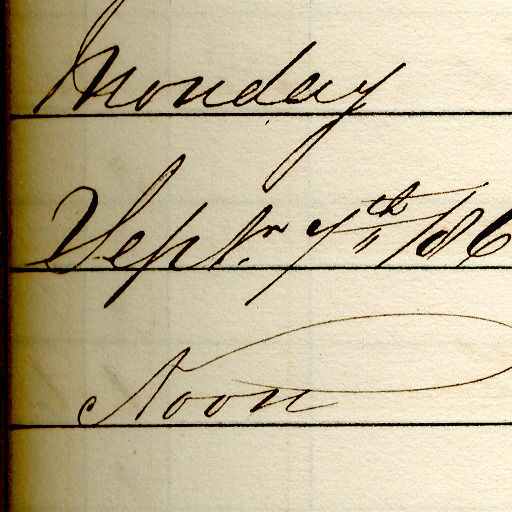 Monday
Septr 7th /86
Noon